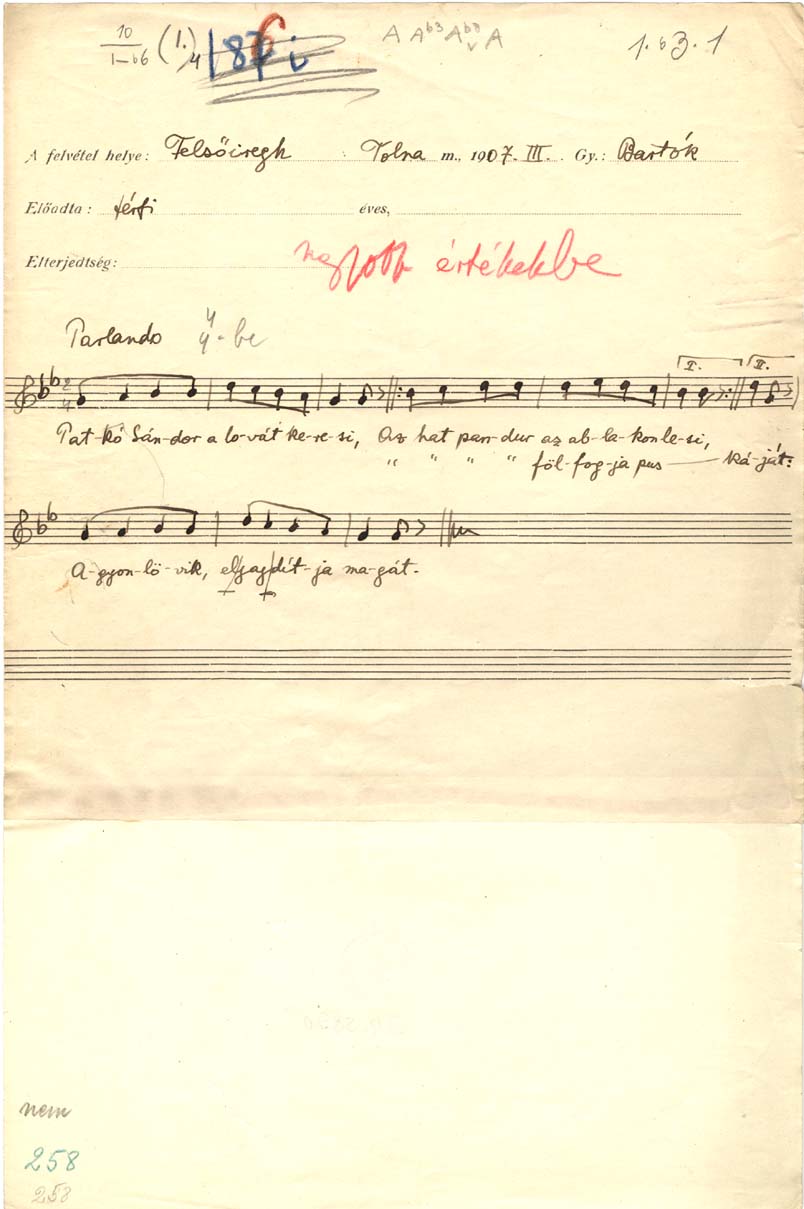 10
I-66 (1.)/4 187 i 6 A A b3 A b3 v A 1. b3. 1
A felvétel helye: Felsőiregh Tolna m., 1907. III. Gy.: Bartók
Előadta: férfi éves,
Elterjedtség: nagyobb értékekbe
Parlando 4/4-be
2/4 I. II.
Pat-kó Sán-dor a lo-vát ke-re-si, Az hat pan-dur az ab-la-kon le-si,
" " " " föl-fog-ja pus — ká-ját:
A-gyon-lö-vik, eljajdít-ja ma-gát.
nem
258
258